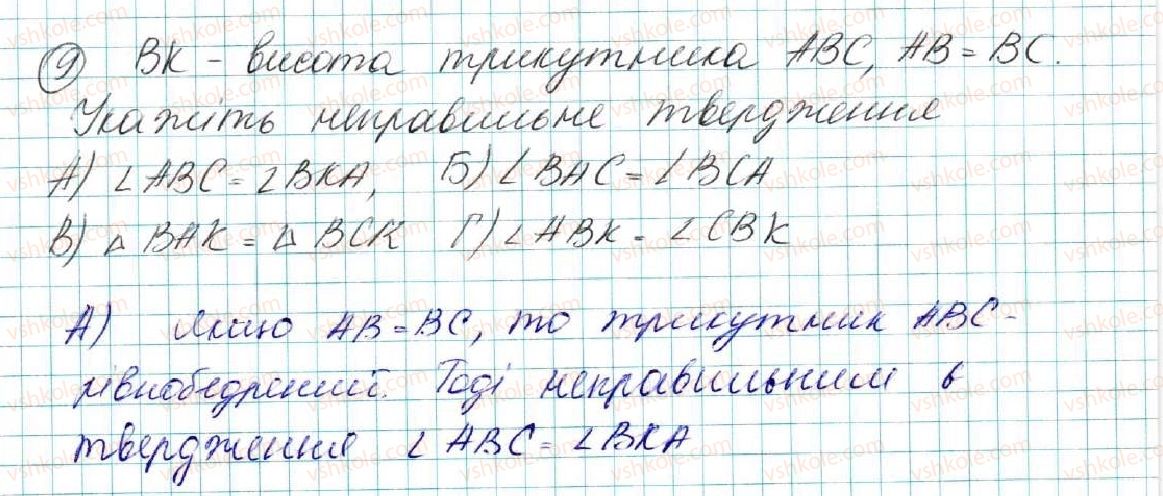 9) BK - висота трикутника ABC, AB = BC.
Укажіть неправильне твердження
А) ∠ABC = ∠BKA, Б) ∠BAC = ∠BCA
В) △ BAK = △ BCK Г) ∠ABK = ∠CBK
А) Якщо AB = BC, то трикутник ABC -
рівнобедрений. Тоді неправильним є
твердження ∠ABC = ∠BKA